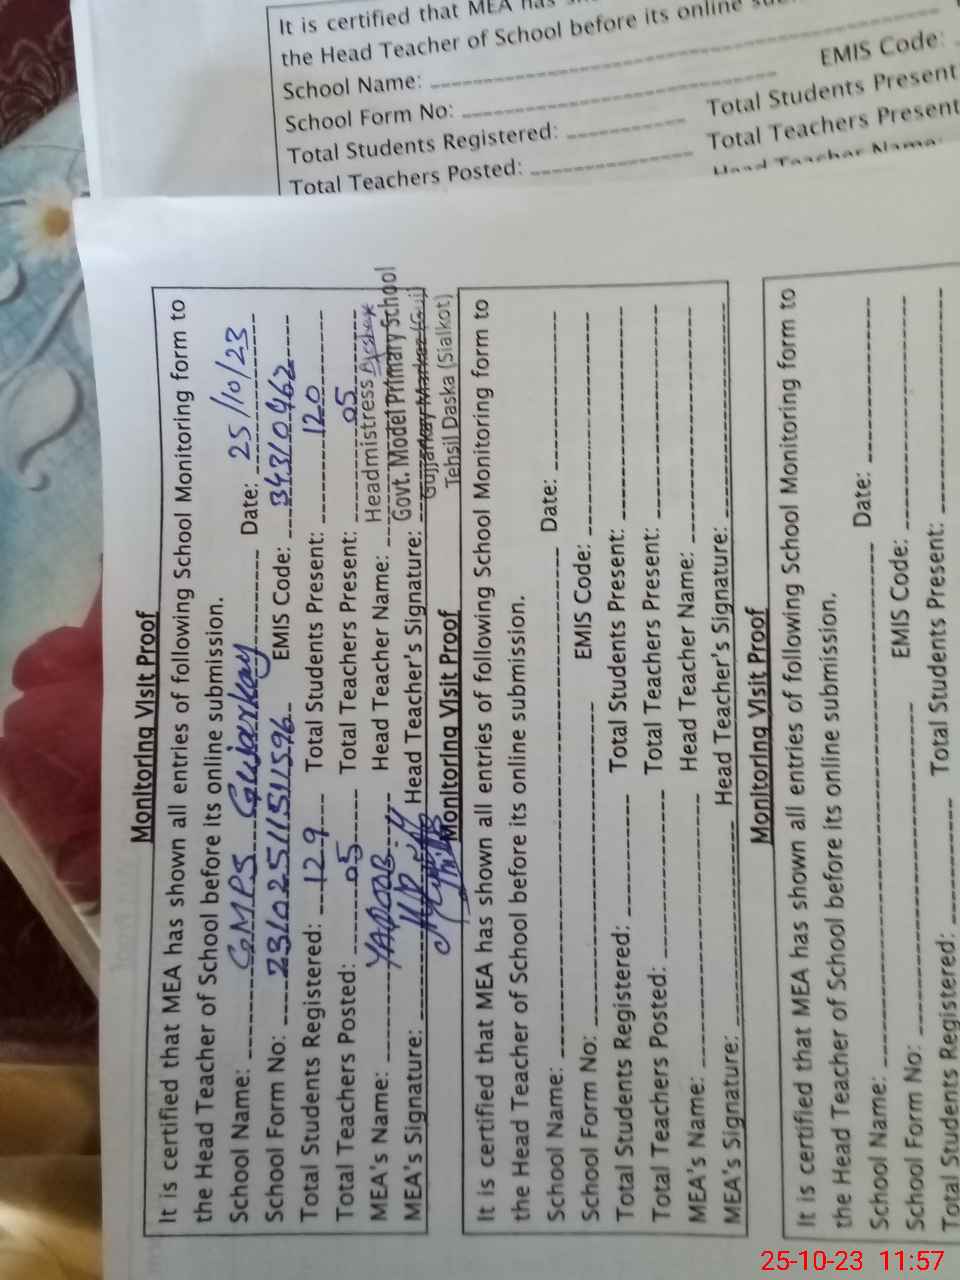 It is certified that MEA has
the Head Teacher of School before its online
School Name:
EMIS Code:
School Form No:
Total Students Present
Total Students Registered:
Total Teachers Present
Total Teachers Posted:
Head Teacher Name:
Monitoring Visit Proof
It is certified that MEA has shown all entries of following School Monitoring form to
the Head Teacher of School before its online submission.
School Name: GMPS Gujarkay Date: 25/10/23
School Form No: 231025115111596 EMIS Code: 34310462
Total Students Registered: 129 Total Students Present: 120
Total Teachers Posted: 05 Total Teachers Present: 05
MEA's Name: Head Teacher Name: Headmistress
Govt. Model Primary School
MEA's Signature: Head Teacher's Signature: Gujjarkay Markaz
Tehsil Daska (Sialkot)
Monitoring Visit Proof
It is certified that MEA has shown all entries of following School Monitoring form to
the Head Teacher of School before its online submission.
School Name: Date:
School Form No: EMIS Code:
Total Students Registered: Total Students Present:
Total Teachers Posted: Total Teachers Present:
MEA's Name: Head Teacher Name:
MEA's Signature: Head Teacher's Signature:
Monitoring Visit Proof
It is certified that MEA has shown all entries of following School Monitoring form to
the Head Teacher of School before its online submission.
School Name: Date:
School Form No: EMIS Code:
Total Students Registered: Total Students Present:
25-10-23 11:57